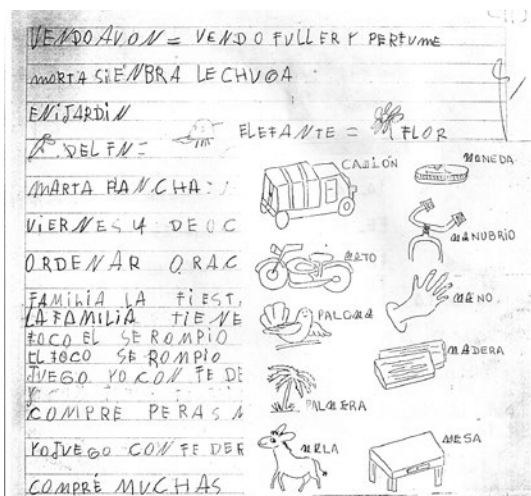 VENDO AVON = VENDO FULLER Y PERFUME
MARTA SIENBRA LECHUGA
EN i JARDiN
DELFN =
ELEFANTE = FLOR
MARTA PLANCHA:
ViERNES 4 DE OC
ORDENAR ORAC
FAMiLiA LA FiEST,
LA FAMILIA TIENE
FOCO EL SE ROMPIO
EL FOCO SE ROMPIO
JUEGO YO CON FE DE
Y
COMPRE PERAS M
YO JUEGO CON FE DER
COMPRÉ MUCHAS
CAMIÓN
MONEDA
MOTO
MANUBRIO
PALOMA
MANO
PALMERA
MADERA
MULA
MESA